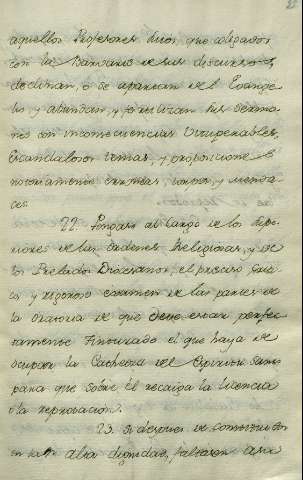 aquellos Profesores
con la
declinan, o se apartan del Evange
lio y abundan, y fertilizan sus Sermo
nes con inconsecuencias vituperables,
escandalosos temas, y proposiciones
notoriamente erroneas, y menda
ces.
22. Pongase al cargo de los Supe
riores de las ordenes Religiosas, y de
los Prelados Diocesanos, el preciso
y rigoroso examen de las partes de
la oratoria de que debe estar perfec
tamente tinturado el que haya de
ocupar la Cathedra del Espiritu Santo
para que sobre él recaiga la licencia
o la reprobacion.
23. Si despues de constituidos
en tan alta dignidad, faltasen